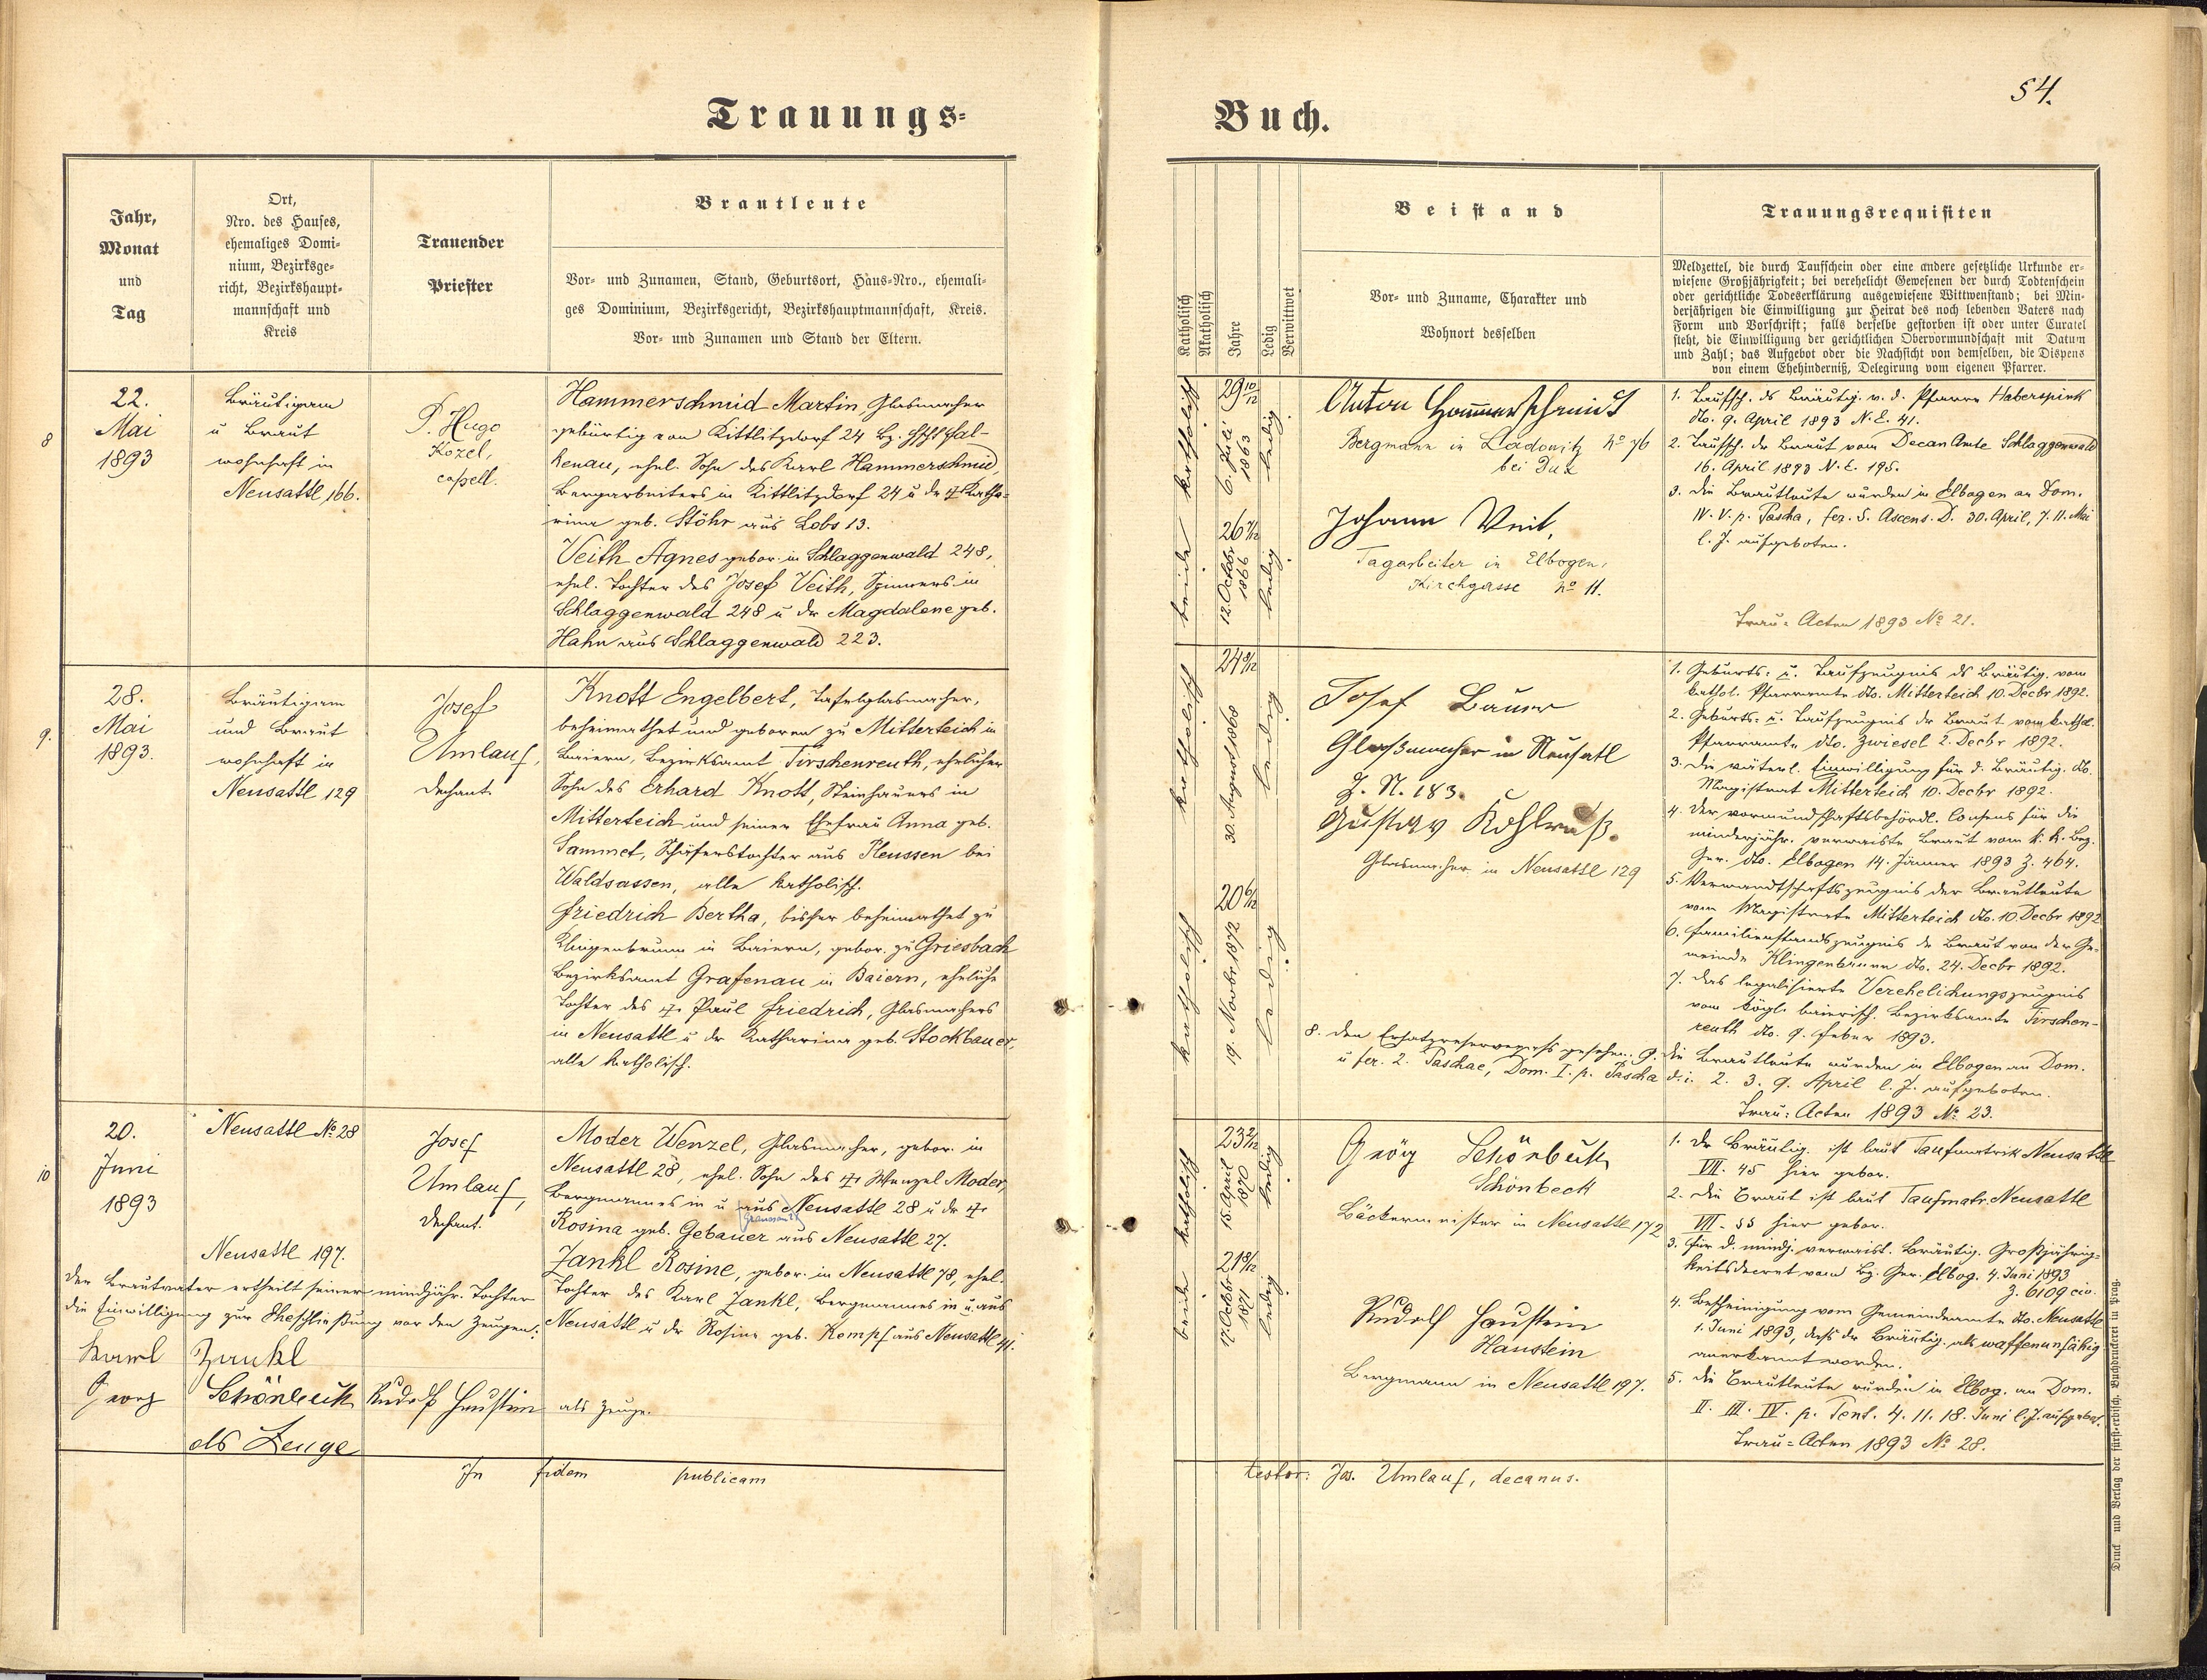 Trauungs-
Jahr,
Monat
und
Tag
Ort,
Nro. des Hauses,
ehemaliges Domi-
nium, Bezirksge-
richt, Bezirkshaupt-
mannschaft und
Kreis
Trauender
Priester
Brautleute
Vor- und Zunamen, Stand, Geburtsort, Haus-Nro., ehemali-
ges Dominium, Bezirksgericht, Bezirkshauptmannschaft, Kreis.
Vor- und Zunamen und Stand der Eltern.
8
22.
Mai
1893
Bräutigam
u Braut
wohnhaft in
Neusattl 166.
P. Hugo
Kozel,
capell.
Hammerschmid Martin, Glasmacher
gebürtig von Kittlitzdorf 24 Bz. Fal-
kenau, ehel. Sohn des Karl Hammerschmid,
Bergarbeiters in Kittlitzdorf 24 u der † Katha-
rina geb. Stöhr aus Lobs 13.
Veith Agnes gebor. in Schlaggenwald 248,
ehel. Tochter des Josef Veith, Spinners in
Schlaggenwald 248 u der Magdalene geb.
Hahn aus Schlaggenwald 223.
9.
28.
Mai
1893.
Bräutigam
und Braut
wohnhaft in
Neusattl 129
Josef
Umlauf,
Dechant.
Knott Engelbert, Tafelglasmacher,
beheimathet und geboren zu Mitterteich in
Baiern, Bezirksamt Tirschenreuth, ehelicher
Sohn des Erhard Knott, Steinhauers in
Mitterteich und seiner Ehefrau Anna geb.
Sammet, Schäferstochter aus Pleussen bei
Waldsassen, alle katholisch.
Friedrich Bertha, bisher beheimathet zu
Klingenbrunn in Baiern, gebor. zu Griesbach
Bezirksamt Grafenau in Baiern, eheliche
Tochter des † Paul Friedrich, Glasmachers
in Neusattl u der Katharina geb. Stockbauer,
alle katholisch.
10
20.
Juni
1893
Neusattl No 28
Neusattl 197.
Josef
Umlauf,
Dechant.
Moder Wenzel, Glasmacher, gebor. in
Neusattl 28, ehel. Sohn des † Wenzel Moder,
Bergmannes in u aus Neusattl 28 u der †
Rosina geb. Gebauer aus Neusattl 27.
Zankl Rosine, gebor. in Neusattl 78, ehel.
Tochter des Karl Zankl, Bergmannes in u. aus
Neusattl u der Rosina geb. Kempf aus Neusattl 41.
Der Brautvater ertheilt seiner mindjähr. Tochter
die Einwilligung zur Eheschließung vor den Zeugen:
Karl Zankl
Georg Schönbeck Rudolf Haustein als Zeuge.
als Zeuge
In fidem publicam
Buch.
54.
Katholisch
Akatholisch
Jahre
Ledig
Verwittwet
Beistand
Vor- und Zuname, Charakter und
Wohnort desselben
Trauungsrequisiten
Meldzettel, die durch Taufschein oder eine andere gesetzliche Urkunde er-
wiesene Großjährigkeit; bei verehelicht Gewesenen der durch Todtenschein
oder gerichtliche Todeserklärung ausgewiesene Wittwenstand; bei Min-
derjährigen die Einwilligung zur Heirat des noch lebenden Vaters nach
Form und Vorschrift; falls derselbe gestorben ist oder unter Curatel
steht, die Einwilligung der gerichtlichen Obervormundschaft mit Datum
und Zahl; das Aufgebot oder die Nachsicht von demselben, die Dispens
von einem Ehehinderniß, Delegirung vom eigenen Pfarrer.
beide katholisch
29 10/12
6. Juli 1863
ledig
26 7/12
12. October 1866
ledig
Anton Hammerschmidt
Bergmann in Ladowitz No 76
bei Dux
Johann Veit,
Tagarbeiter in Elbogen,
Kirchgasse No 11.
1. Taufsch. ds Bräutig. v. d. Pfarre Haberspirk
dto. 9. April 1893 N.E. 41.
2. Taufsch. der Braut vom Decan Amte Schlaggenwald
16. April 1893 N.E. 195.
3. Die Brautleute wurden in Elbogen an Dom.
IV. V. p. Pascha, fer. S. Ascens. D. 30. April, 7. 11. Mai
l. J. aufgeboten.
Trau-Acten 1893 No 21.
katholisch
24 9/12
30. August 1868
ledig
katholisch
20 6/12
19. Novbr 1872
ledig
Josef Bauer
Glasmacher in Neusatl
Z. N. 183.
Gustav Kohlruß.
Glasmacher in Neusattl 129
1. Geburts- u. Taufzeugnis ds Bräutig. vom
kathol. Pfarramte dto. Mitterteich 10. Decbr 1892.
2. Geburts- u. Taufzeugnis der Braut vom kathol.
Pfarramte dto. Zwiesel 2. Decbr 1892.
3. Die väterl. Einwilligung für d. Bräutig. dto.
Magistrat Mitterteich 10. Decbr 1892.
4. Der vormundschaftsbehördl. Consens für die
minderjähr. verwaiste Braut vom k. k. Bez.
Ger. dto. Elbogen 14. Jänner 1893 Z. 464.
5. Verwandtschaftszeugnis der Brautleute
vom Magistrate Mitterteich dto. 10. Decbr 1892
6. Familienstandszeugnis der Braut von der Ge-
meinde Klingenbrunn dto. 24. Decbr 1892.
7. Das legalisierte Verehelichungszeugnis
vom königl. baierisch. Bezirksamte Tirschen-
reuth dto. 9. Feber 1893.
8. Den Ersatzreservepass gesehen. 9. Die Brautleute wurden in Elbogen an Dom.
u fer. 2. Paschae, Dom. I. p. Pascha d. i. 2. 3. 9. April l. J. aufgeboten.
Trau-Acten 1893 No 23.
beide katholisch
23 2/12
15. April 1870
ledig
21 8/12
17. October 1871
ledig
Georg Schönbeck
Schönbeck
Bäckermeister in Neusattl 172
Rudolf Haustein
Haustein
Bergmann in Neusattl 197.
1. Der Bräutig. ist laut Taufmatrik Neusattl
VII. 45 hier gebor.
2. Die Braut ist laut Taufmatr. Neusattl
VII. 55 hier gebor.
3. Für d. mindj. verwaist. Bräutig. Großjährig-
keitsdecret vom Bz. Ger. Elbog. 4. Juni 1893
Z. 6109 civ.
4. Bescheinigung vom Gemeindeamte dto. Neusattl
1. Juni 1893, dass der Bräutig. als waffenunfähig
anerkannt worden.
5. Die Brautleute wurden in Elbog. an Dom.
II. III. IV. p. Pent. 4. 11. 18. Juni l. J. aufgebot.
Trau-Acten 1893 No 28.
testor: Jos. Umlauf, decanus.
Druck und Verlag der fürst-erbisch. Buchdruckerei in Prag.